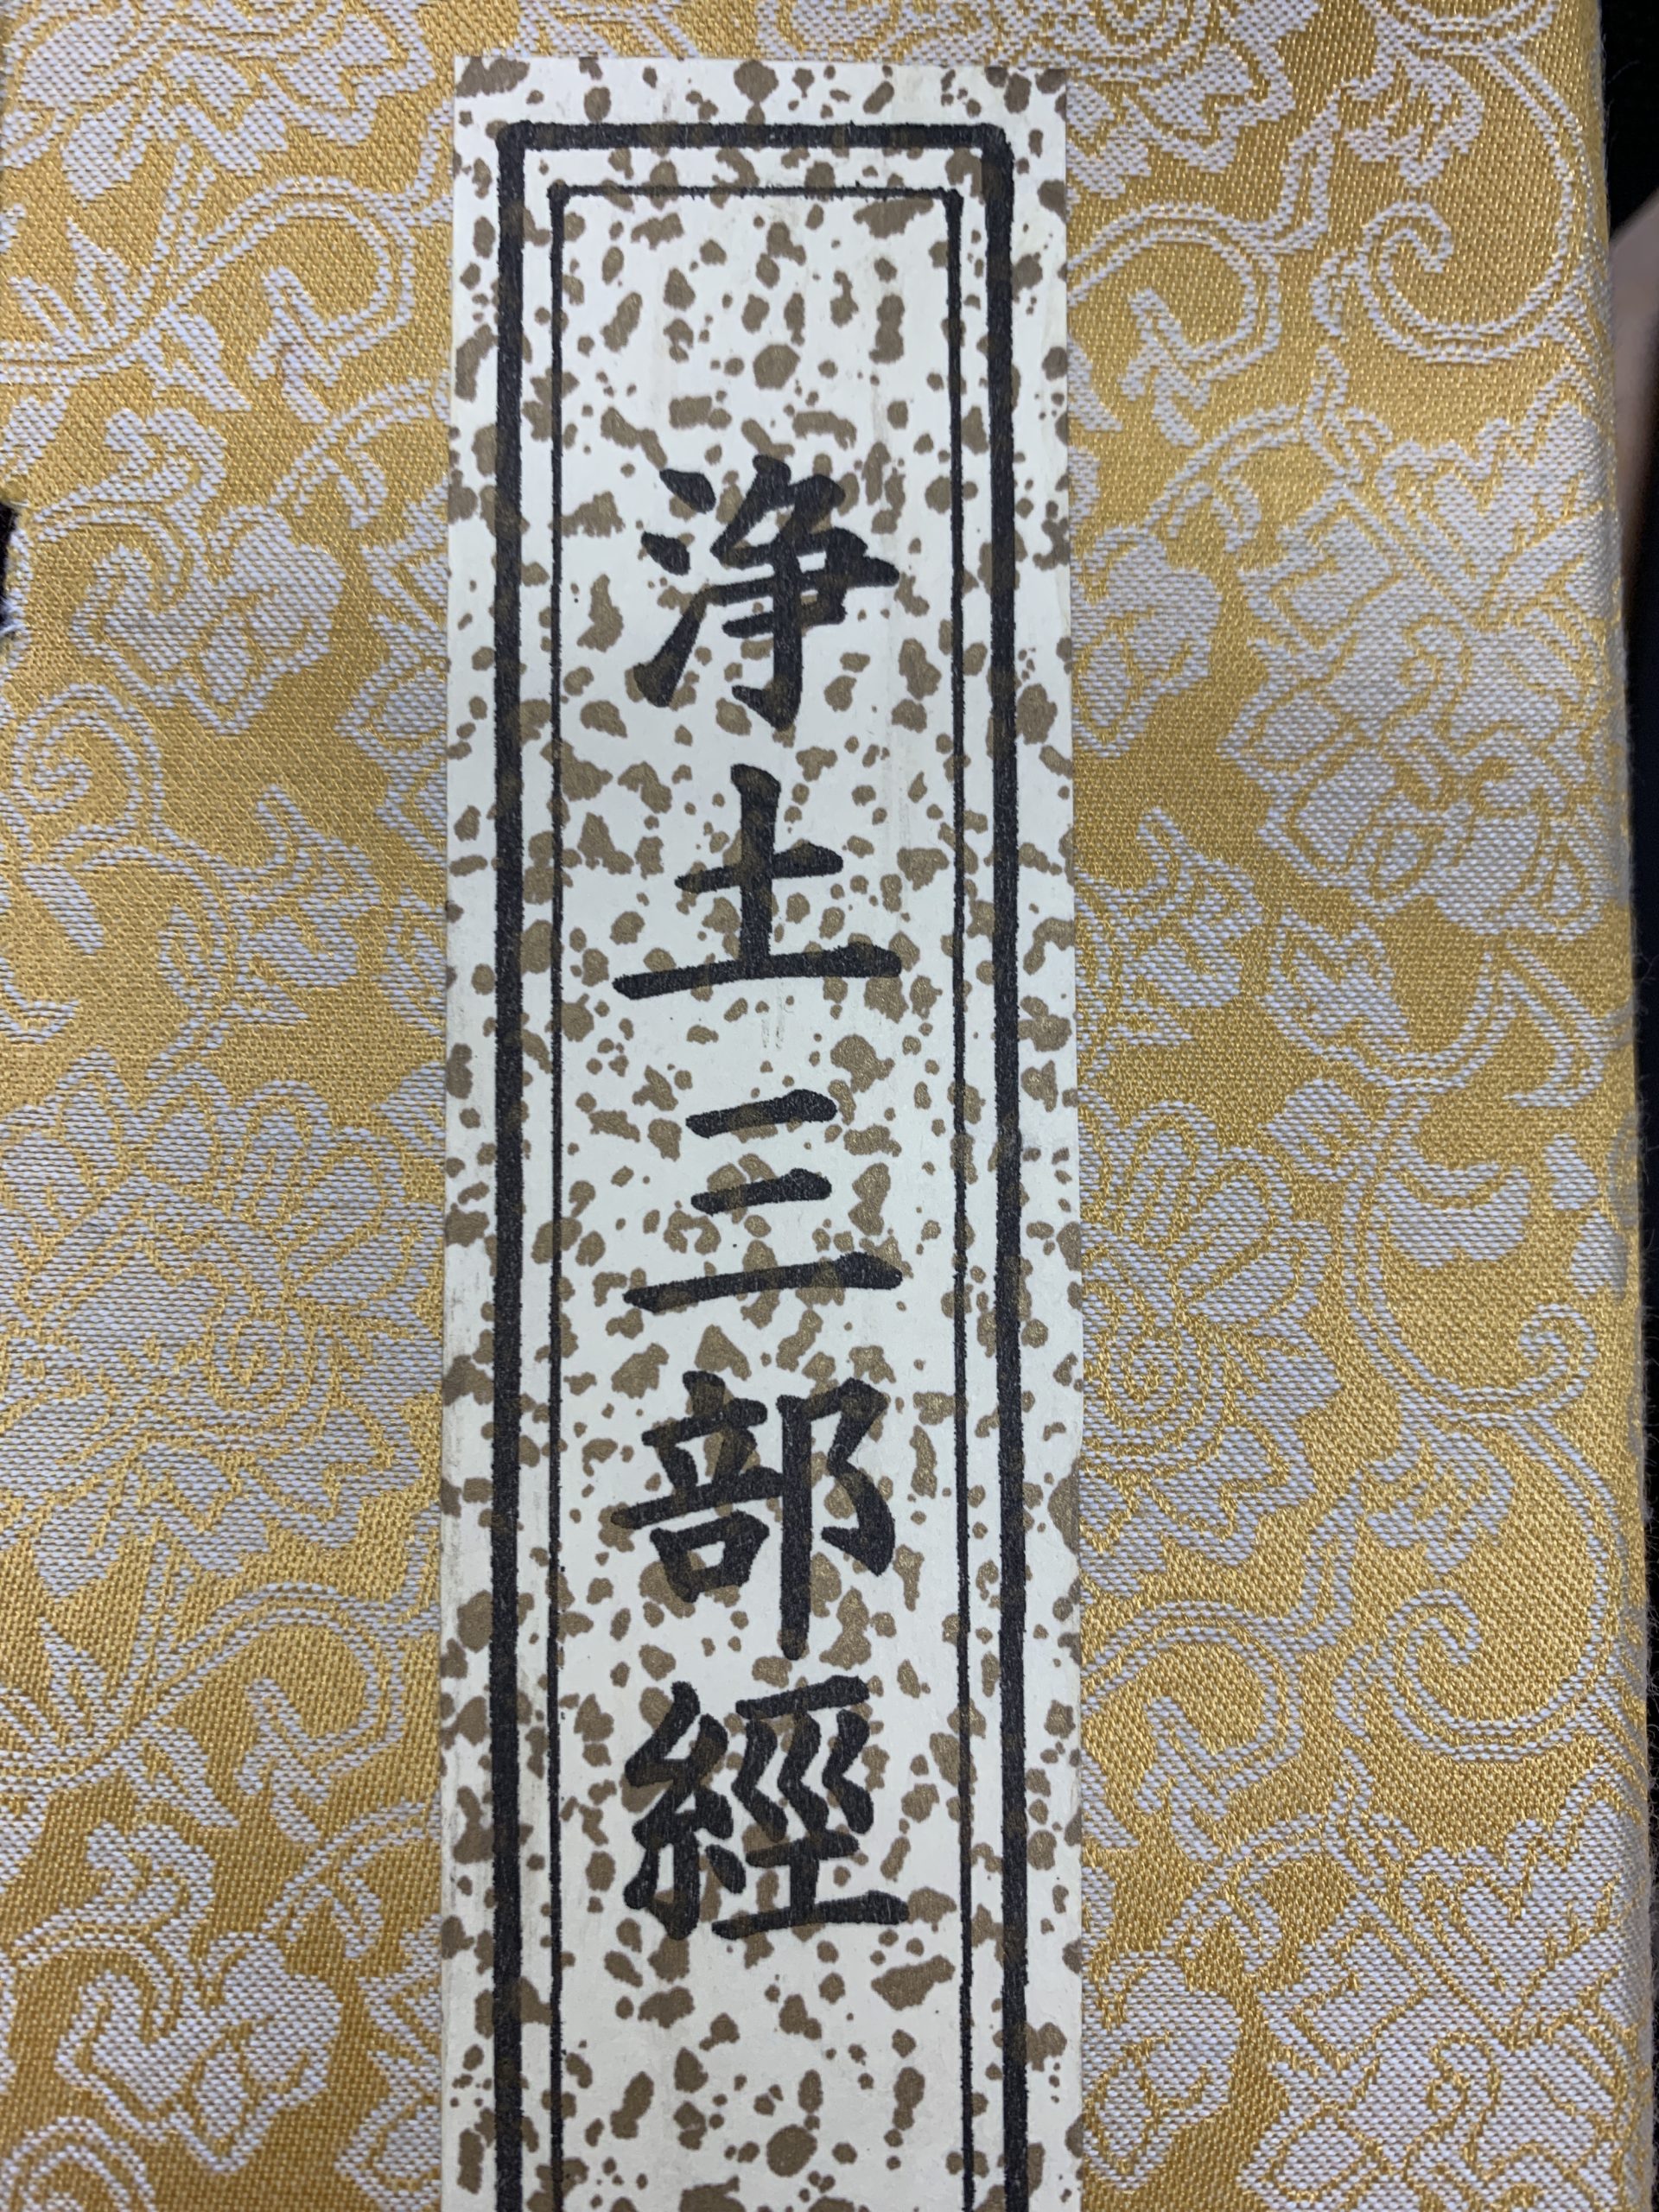 浄土三部經